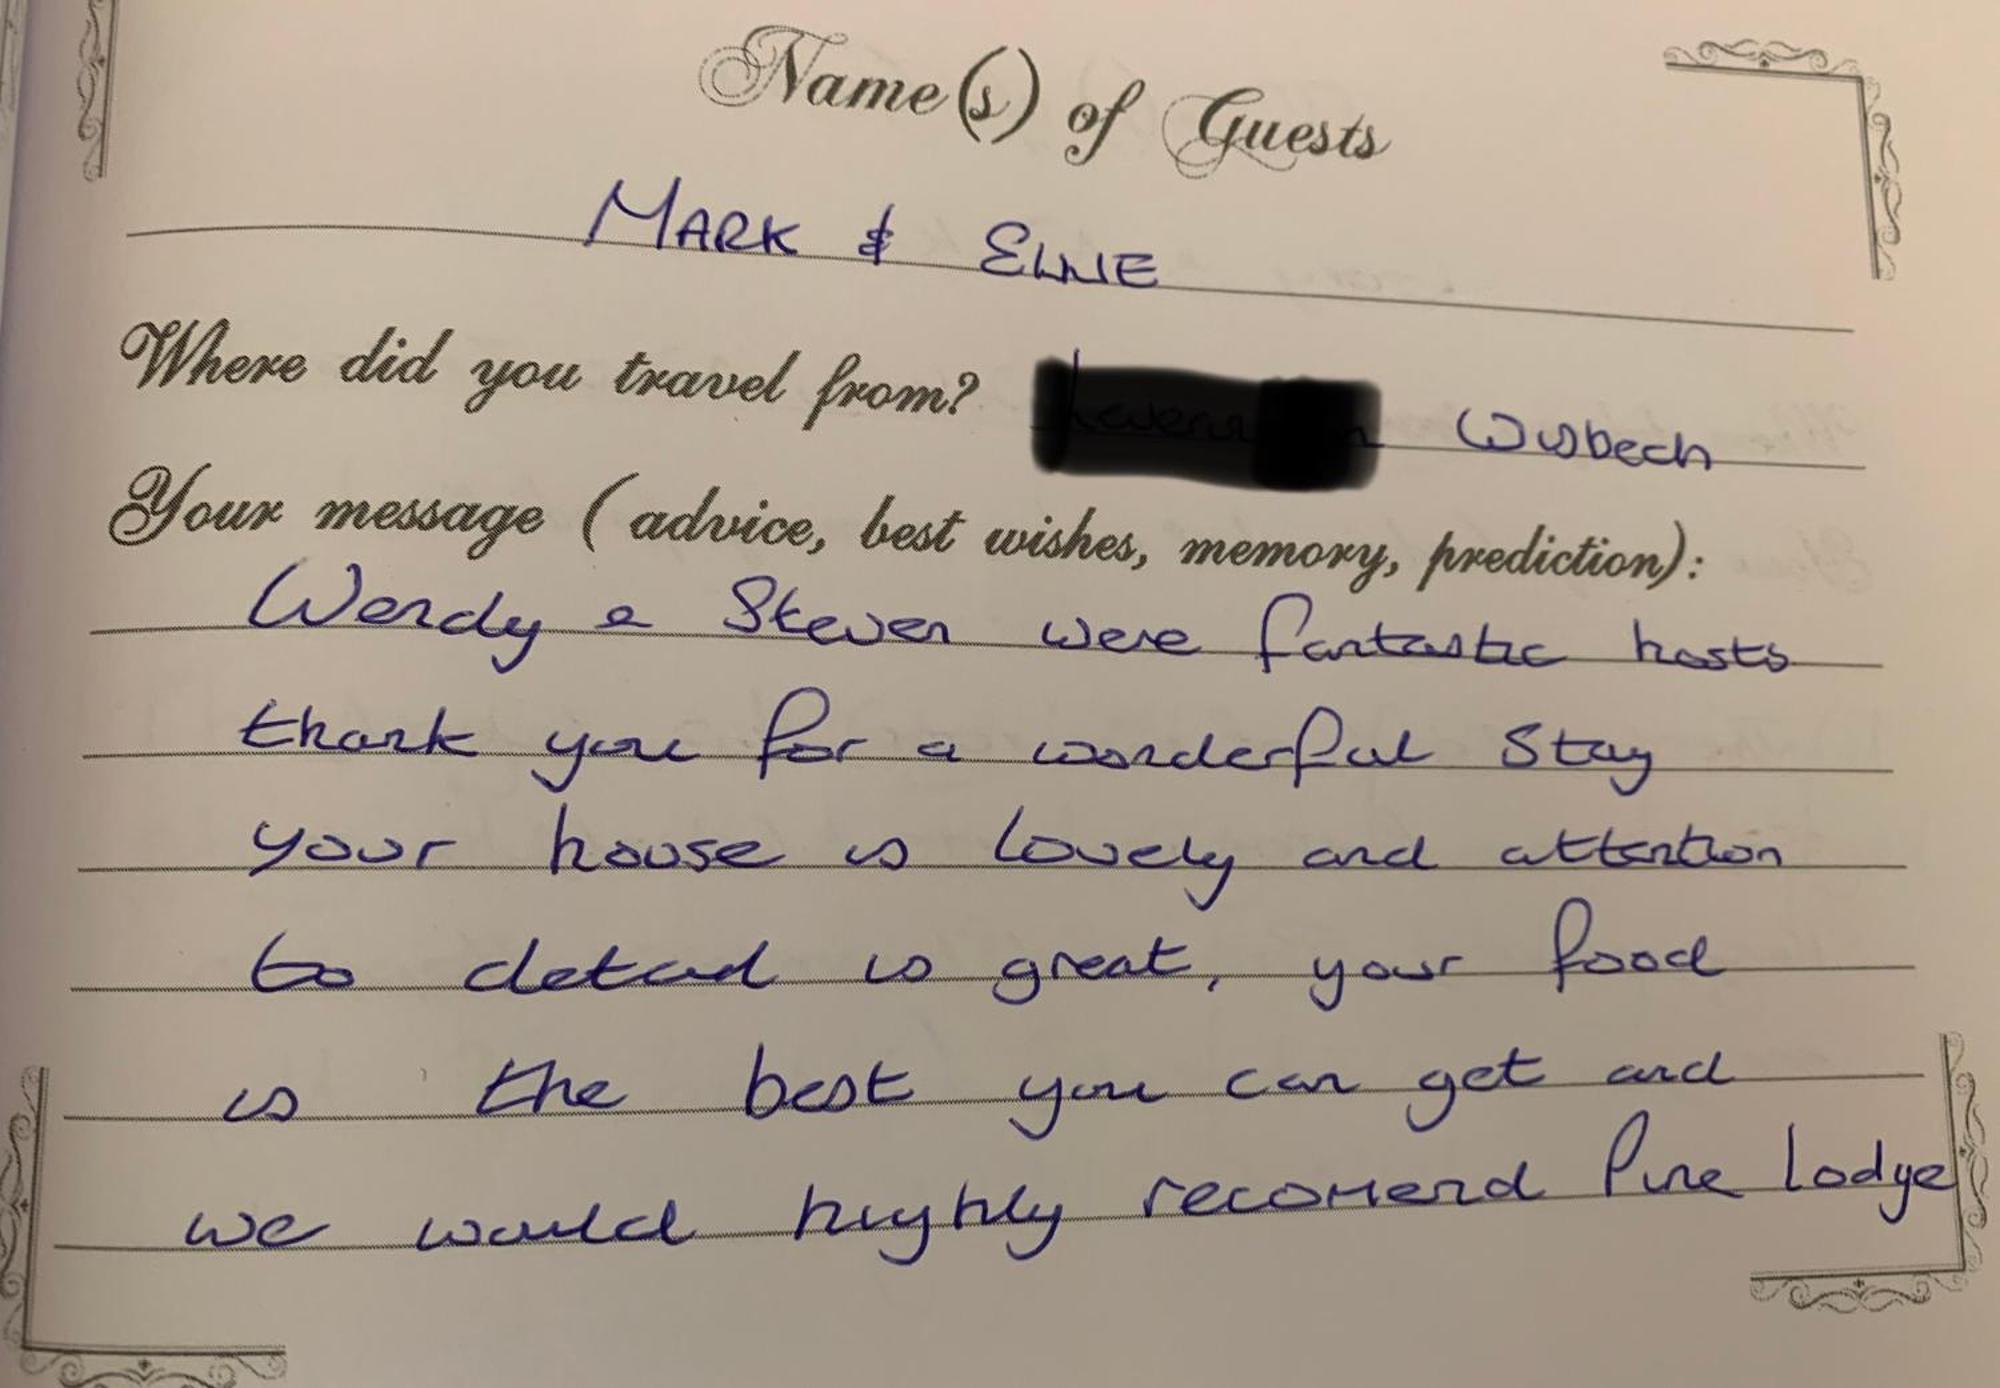 Name(s) of Guests
MARK & ELLIE
Where did you travel from? Wisbech
Your message (advice, best wishes, memory, prediction):
Wendy & Steven were fantastic hosts
thank you for a wonderful Stay
your house is lovely and attention
to detail is great, your food
is the best you can get and
we would highly recomend Pine Lodge